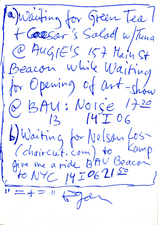 a) Waiting for Green Tea
+ Caesar's Salad w/tuna
@ AUGIE'S 157 Main St
Beacon while Waiting
for Opening of art-show
@ BAU: NOISE 17
13 14 I 06
b) Waiting for Nelson
(chaircut.com) to
give me a ride BAU Beacon
to NYC 14 I 06 21
"=+="